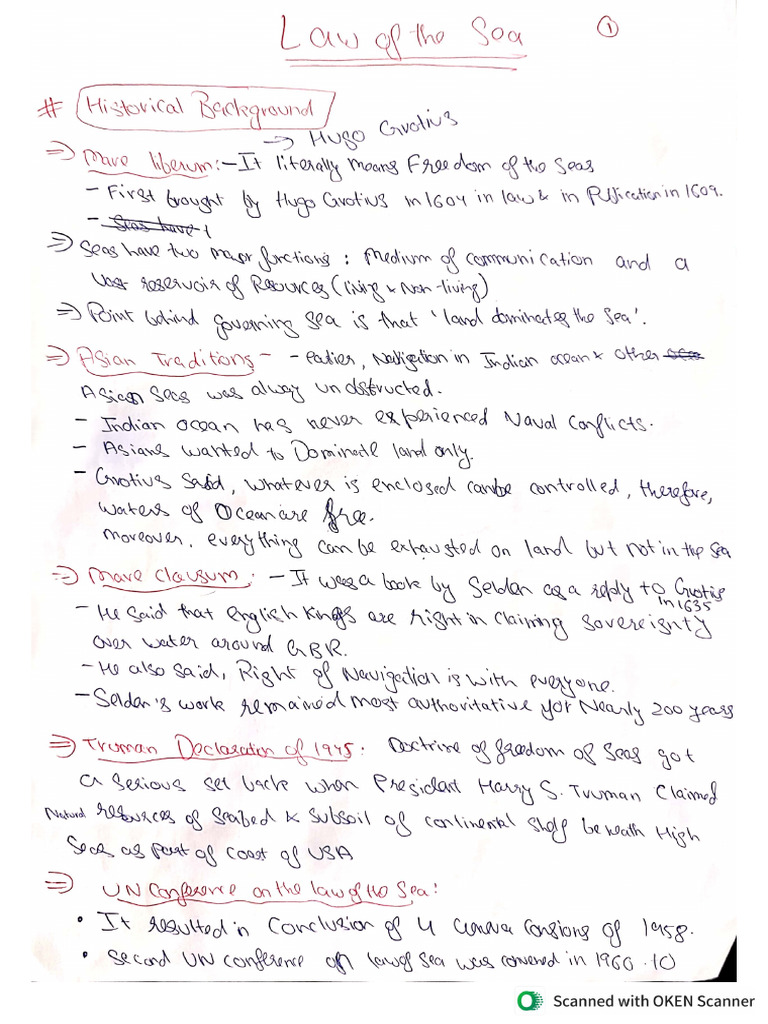 Law of the Sea ①
# Historical Background
→ Hugo Grotius
⇒ Mare liberum:- It literally means Freedom of the Seas
- First brought by Hugo Grotius in 1604 in law & in Publication in 1609.
- Seas have t
⇒ Seas have two major functions : Medium of communication and a
Vast reservoir of Resources (living & Non-living)
⇒ Point behind governing Sea is that 'land dominates the Sea'.
⇒ Asian Traditions - - Earlier, Navigation in Indian ocean & Other sea
Asian Seas was alway unobstructed.
- Indian Ocean has never experienced Naval Conflicts.
- Asians wanted to Dominate land only.
- Grotius said, whatever is enclosed can be controlled, therefore,
waters of Ocean are free.
Moreover, everything can be exhausted on land but not in the sea
⇒ Mare Clausum: - It was a book by Selden as a reply to Grotius
in 1635
- He said that english kings are right in claiming sovereignty
over water around GBR.
- He also said, Right of Navigation is with everyone.
- Selden's work remained most authoritative for Nearly 200 years
⇒ Truman Declaration of 1945: Doctrine of freedom of Seas got
a serious set back when President Harry S. Truman Claimed
Natural resources of Seabed & Subsoil of continental shelf beneath High
Seas as part of coast of USA
⇒ UN Conference on the law of the Sea:
• It resulted in Conclusion of 4 Geneva of 1958.
• Second UN conference on law of sea was convened in 1960. to
Scanned with OKEN Scanner